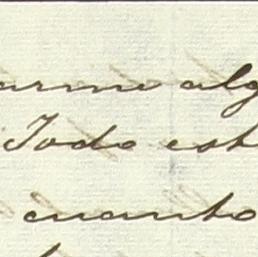 armo alg
Todo est
cuanto